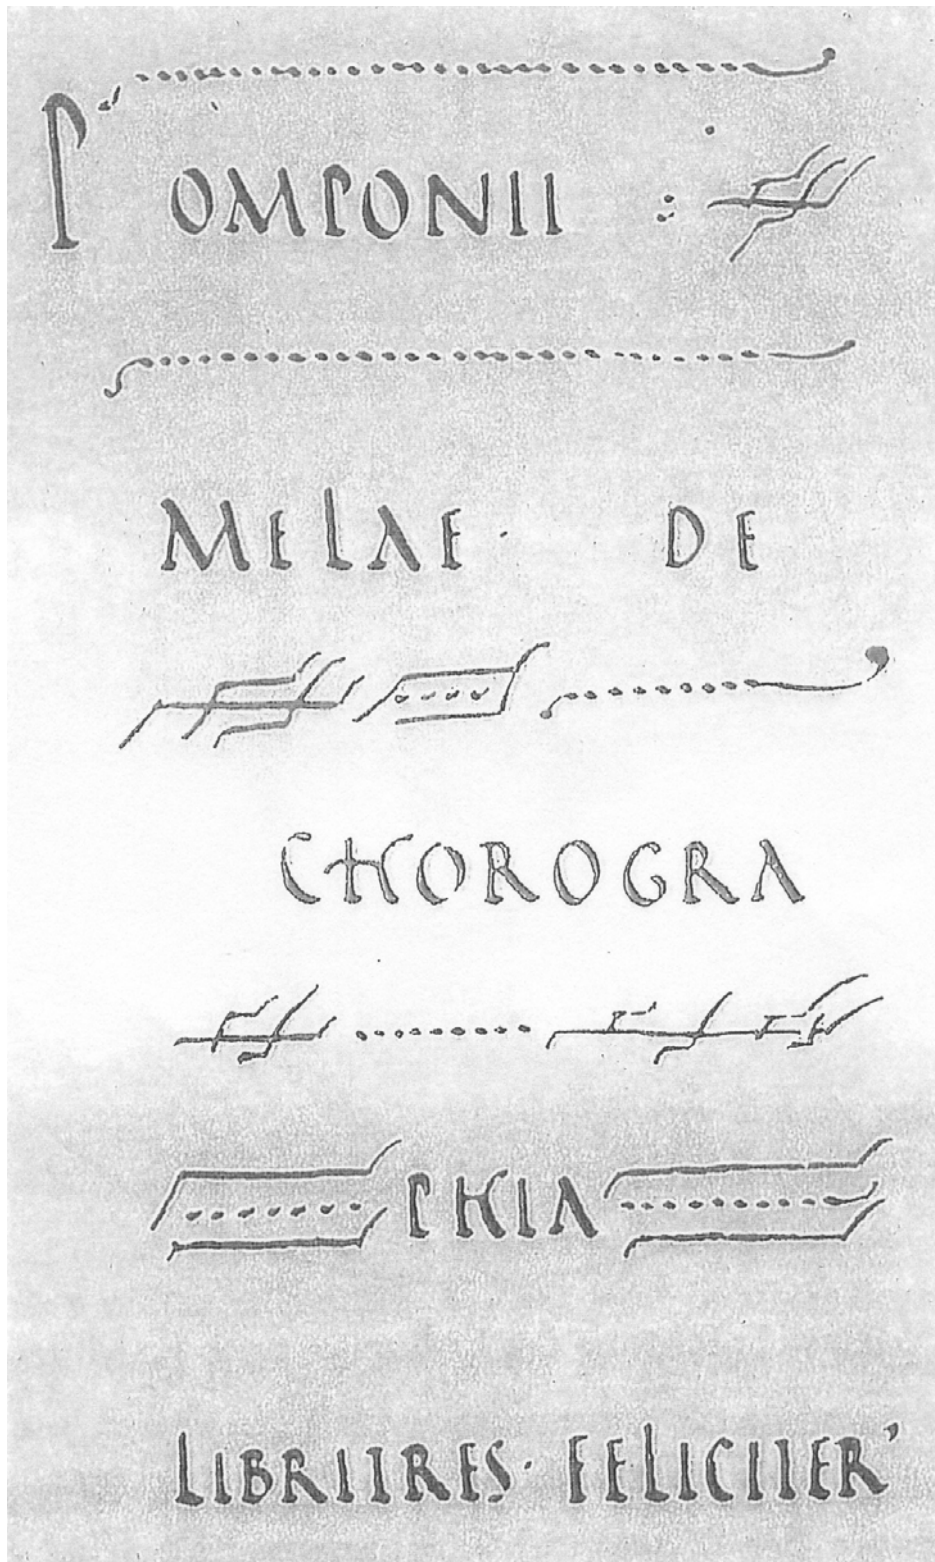 POMPONII :
MELAE · DE
CHOROGRA
PHIA
LIBRI TRES · FELICITER